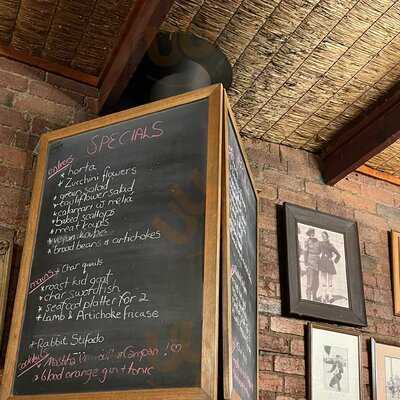 SPECIALS
Entrees
* horta
* Zucchini flowers
* green salad
* cauliflower salad
* calamari w melia
* baked scallops
* meat koupes
* vegan koupes
* broad beans & artichokes
mains
* Char quails
* roast kid goat
* char swordfish
* seafood platter for 2
* Lamb & Artichoke fricase
* Rabbit Stifado
cocktails
* Mastiha
* blood orange gin + tonic